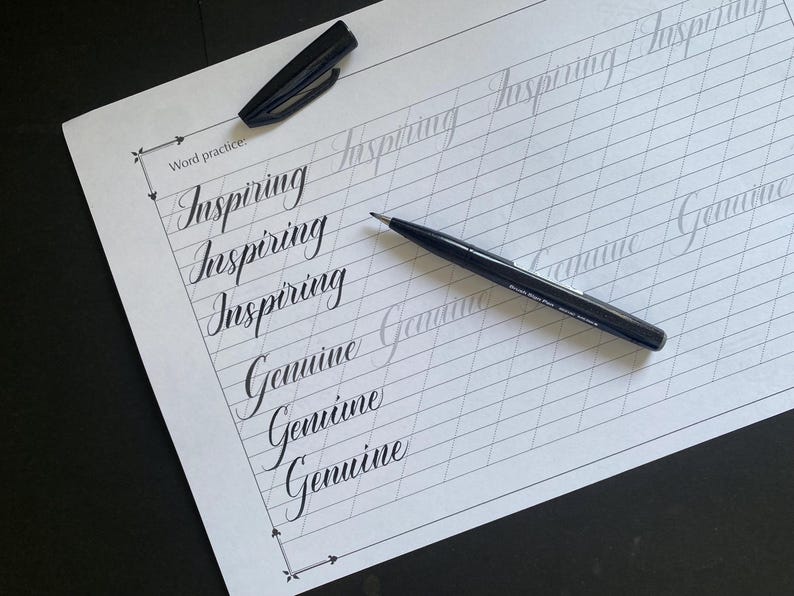 Word practice:
Inspiring Inspiring Inspiring Inspiring
Inspiring
Inspiring
Genuine Genuine Genuine Genuine
Genuine
Genuine
Brush Sign Pen